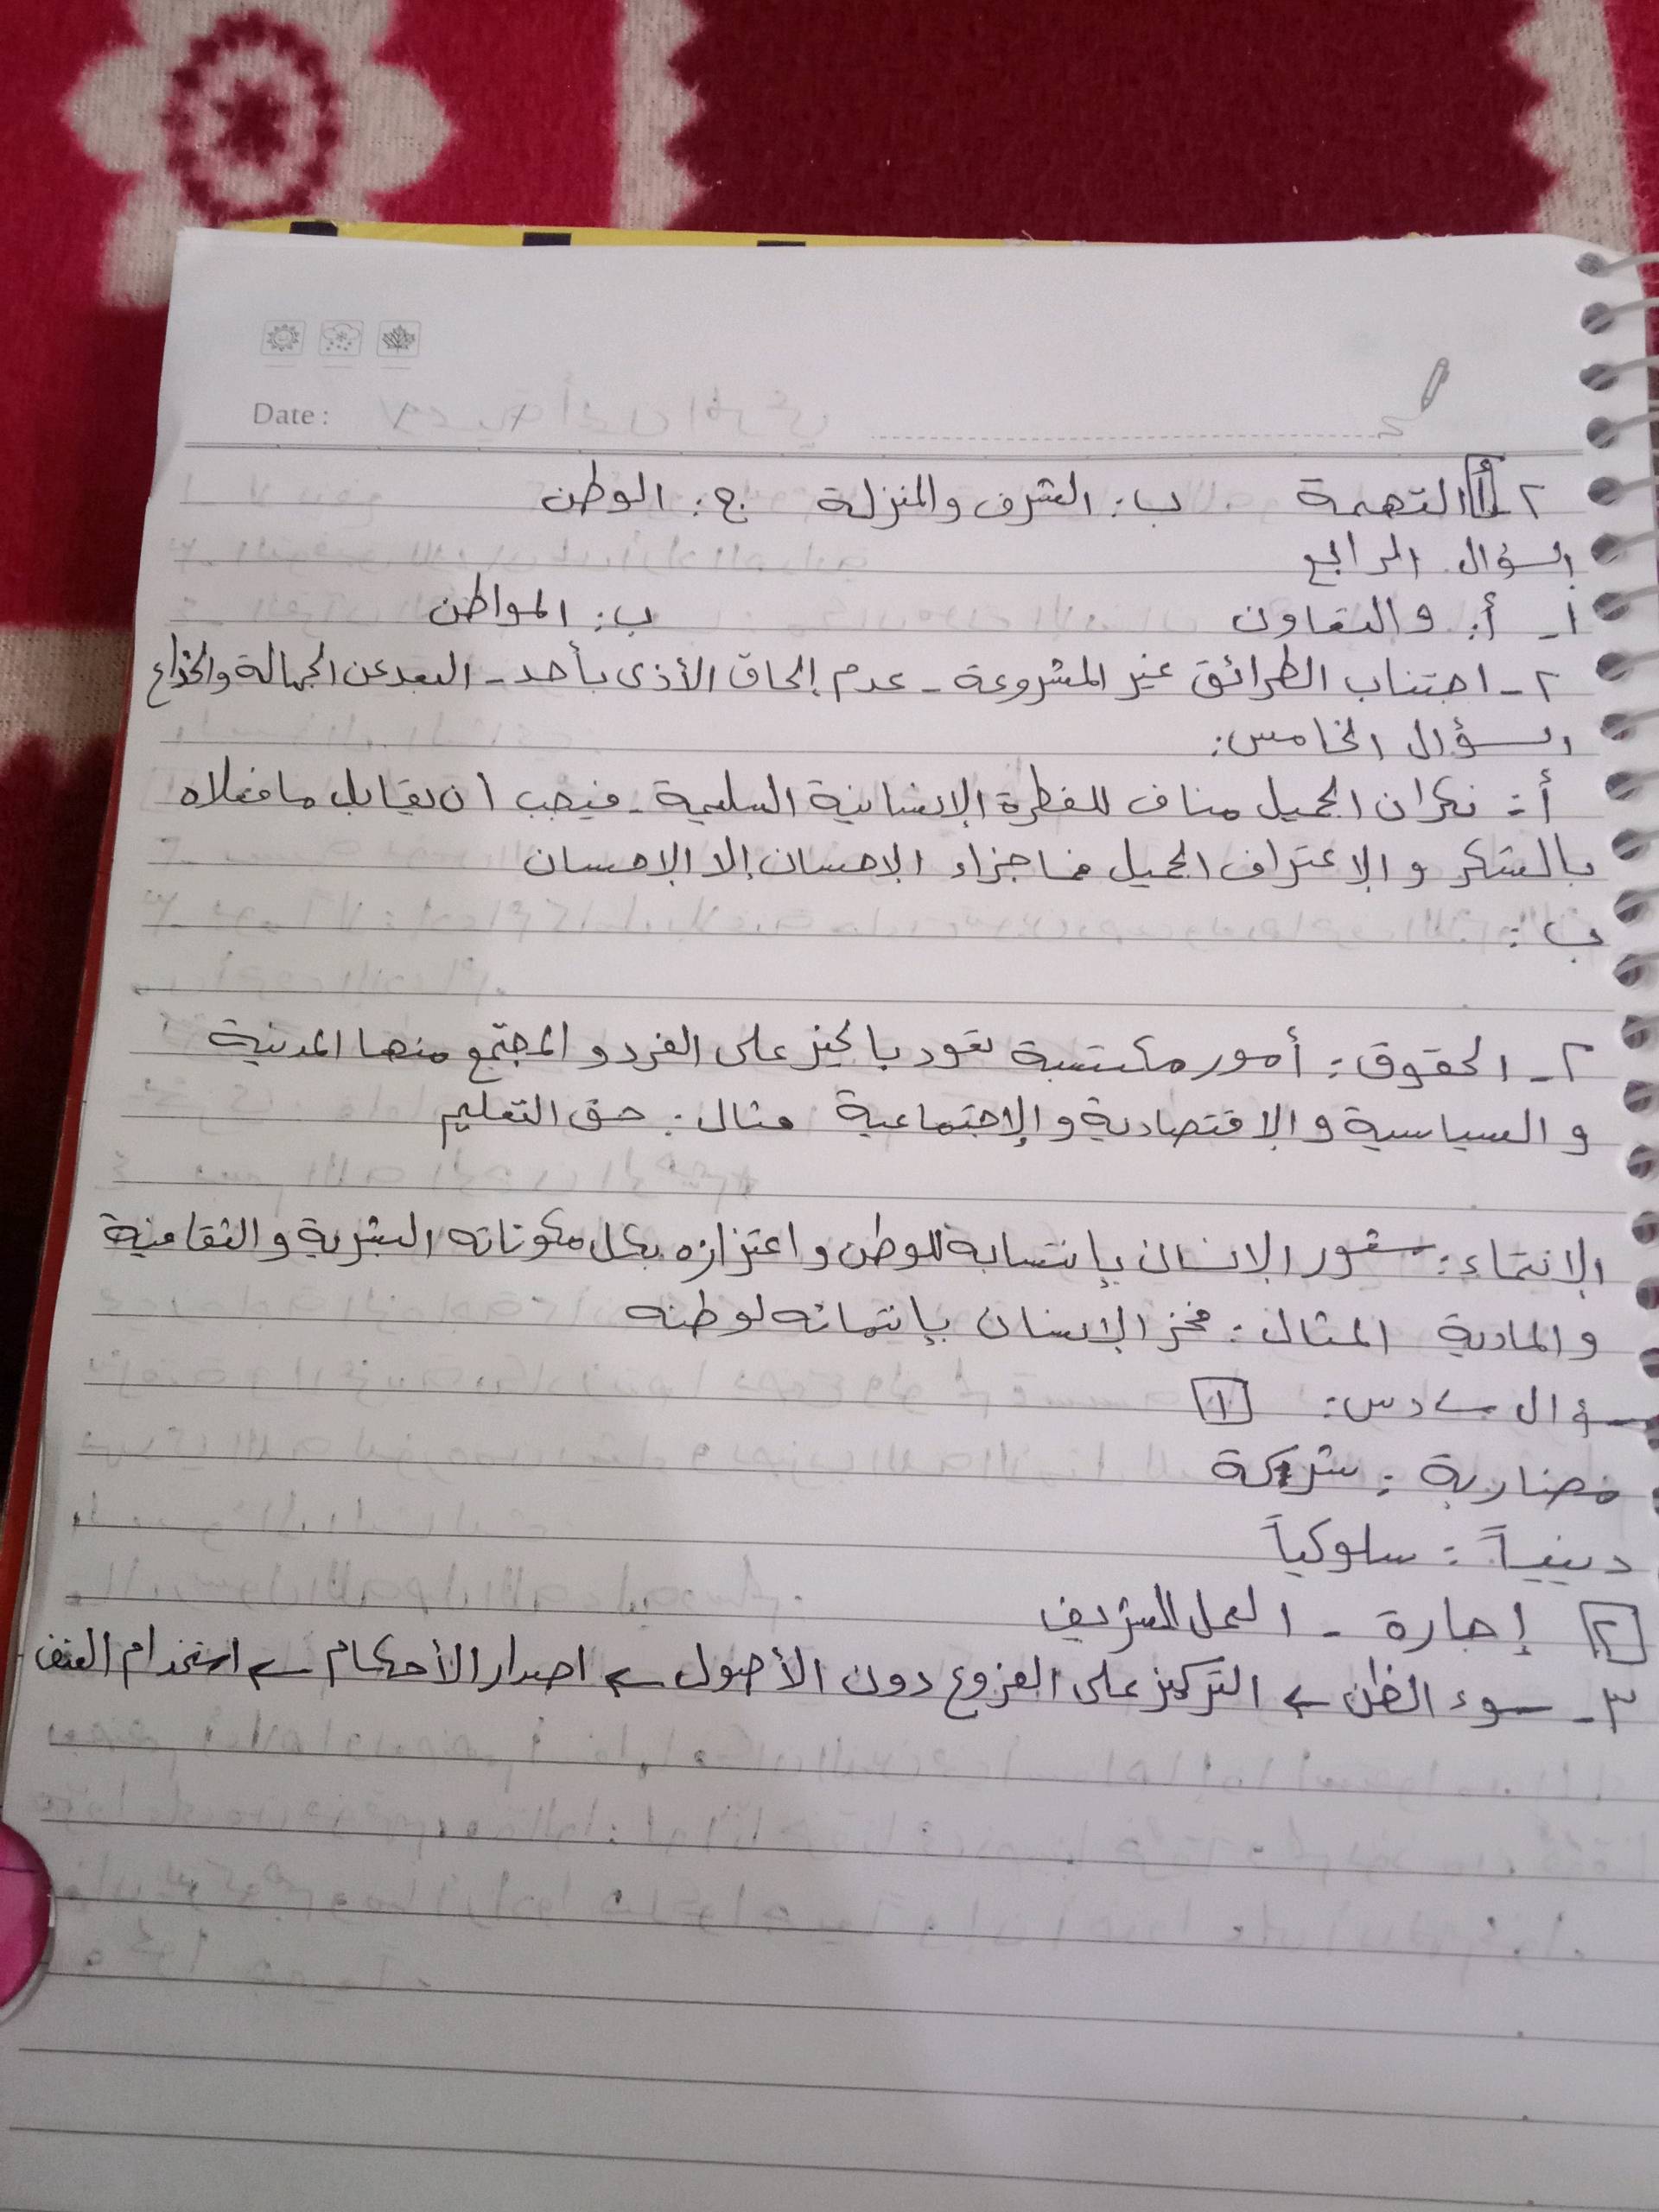 Date:
٢ـ أ التهمة ب: الشرف والمنزلة ج: الوطن
السؤال الرابع
١ـ أ: والتعاون ب: المواطن
٢ـ اجتناب الطرائق غير المشروعة ـ عدم إلحاق الأذى بأحد ـ البعد عن الجهالة والخداع
السؤال الخامس:
أ: نكران الجميل مناف للفطرة الإنسانية السليمة ـ فيجب ان يقابل ما فعلاه
بالشكر والإعتراف الجميل فما جزاء الإحسان إلا الإحسان
ب:
٢ـ الحقوق: أمور مكتسبة تعود بالخير على الفرد و المجتمع منها المدنية
و السياسية و الاقتصادية و الإجتماعية مثال: حق التعليم
الإنتماء: شعور الإنسان بإنتسابه للوطن و اعتزازه بكل مكوناته البشرية و الثقافية
و المادية المثال: فخر الإنسان بإنتمائه لوطنه
سؤال سادس: ١
مضاربة: شركة
دينياً: سلوكياً
٢ إجارة ـ العمل الشريف
٣ـ سوء الظن ← التركيز على الفروع دون الأصول ← اصدار الأحكام ← استخدام العنف